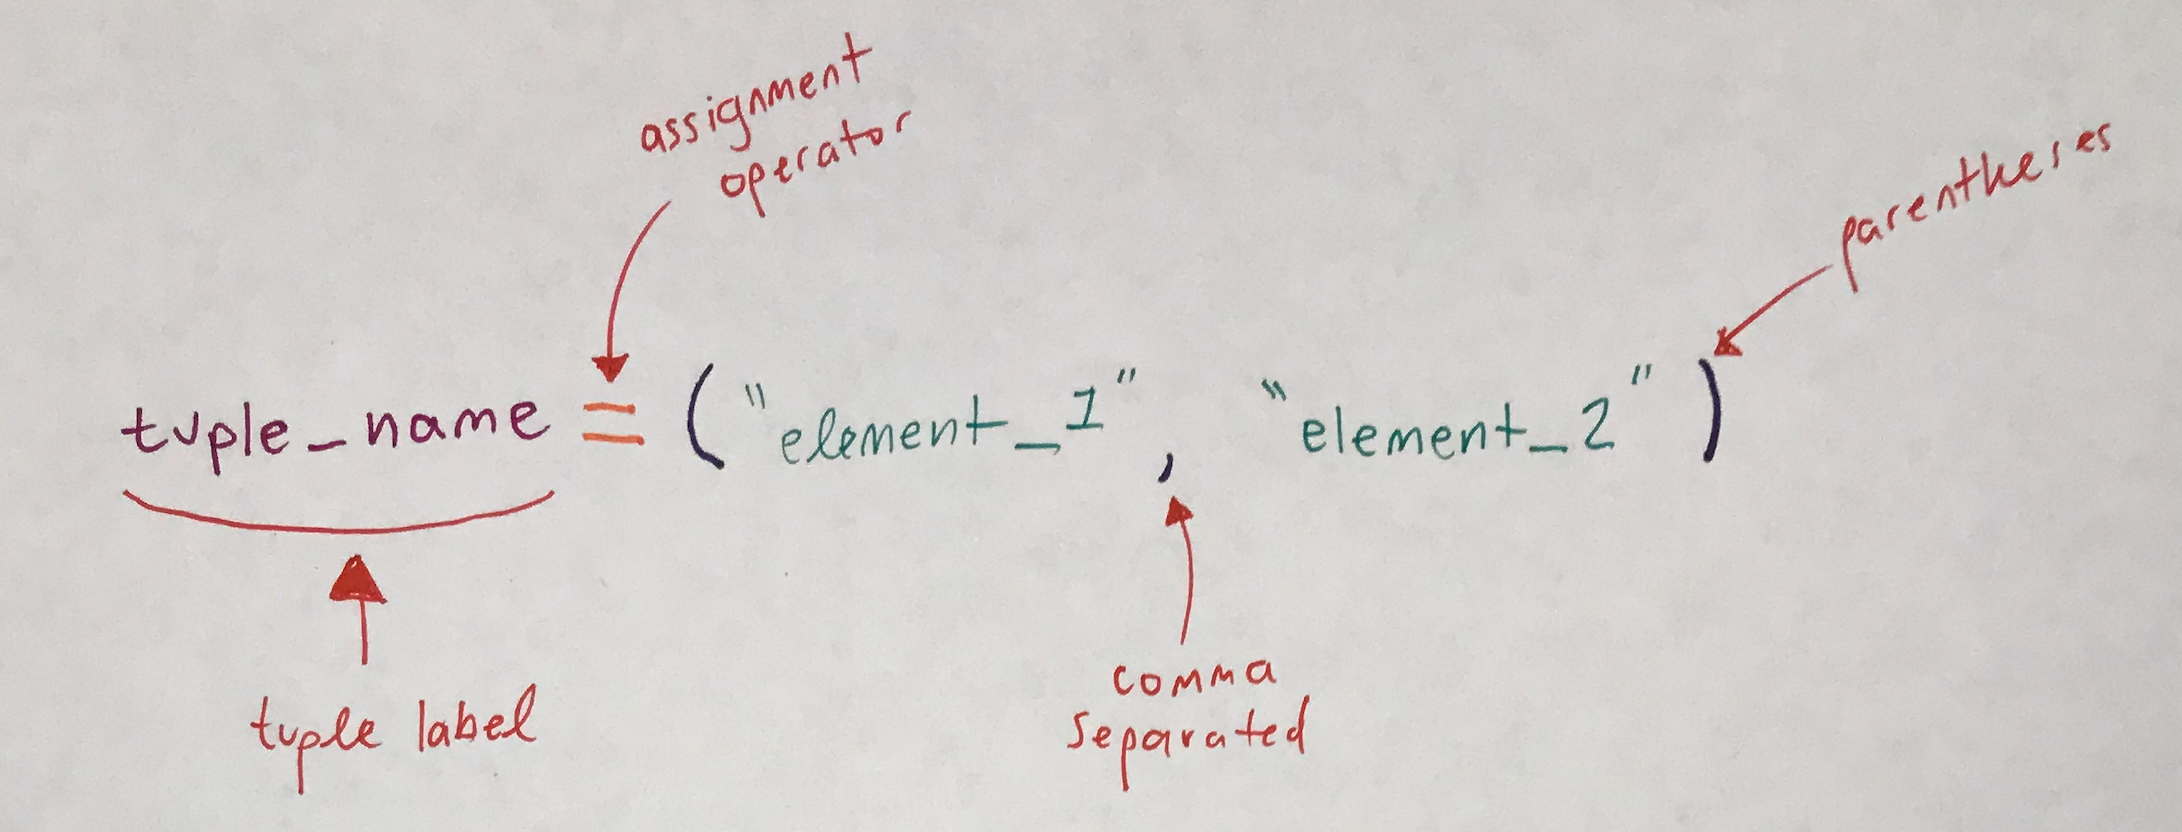 assignment
operator
parentheses
tuple_name = ("element_1", "element_2")
tuple label
comma
separated